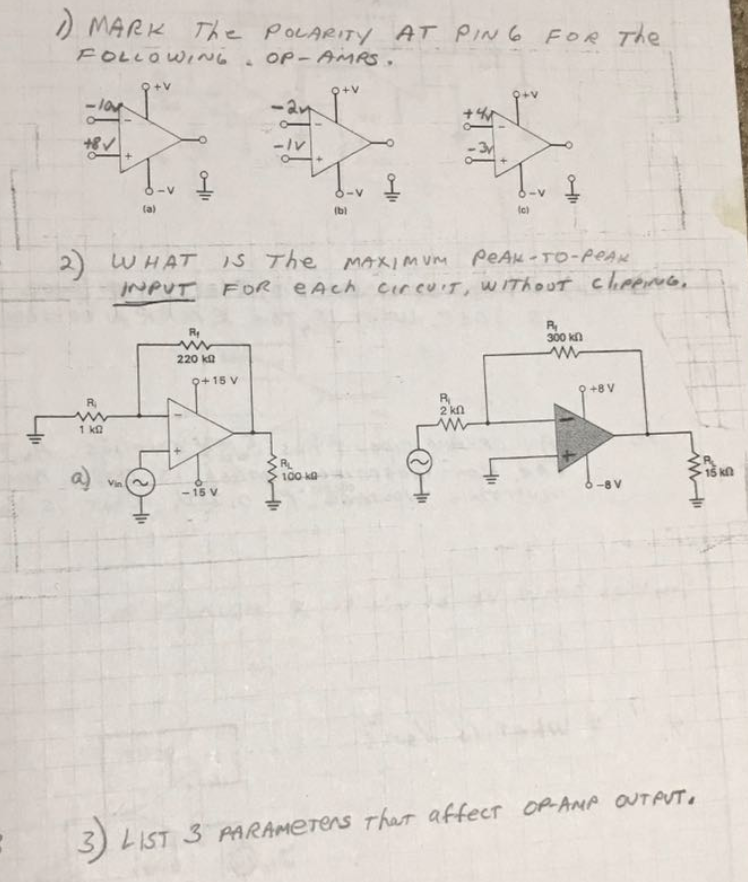 1) MARK The POLARITY AT PIN 6 FOR The
FOLLOWING . OP-AMPS.
+V
-10v
+8V
-
+
-V
(a)
+V
-2v
-1V
-
+
-V
(b)
+V
+4v
-3v
-
+
-V
(c)
2) WHAT IS The MAXIMUM PeAK-TO-PeAK
INPUT FOR eACh CIRCUIT, WITHOUT CLIPPING.
Rf
220 kΩ
+15 V
Ri
1 kΩ
-
+
a) Vin
-15 V
RL
100 kΩ
Rf
300 kΩ
+8 V
Ri
2 kΩ
-
+
-8 V
RL
15 kΩ
3) LIST 3 PARAMETERS That affect OP-AMP OUTPUT.